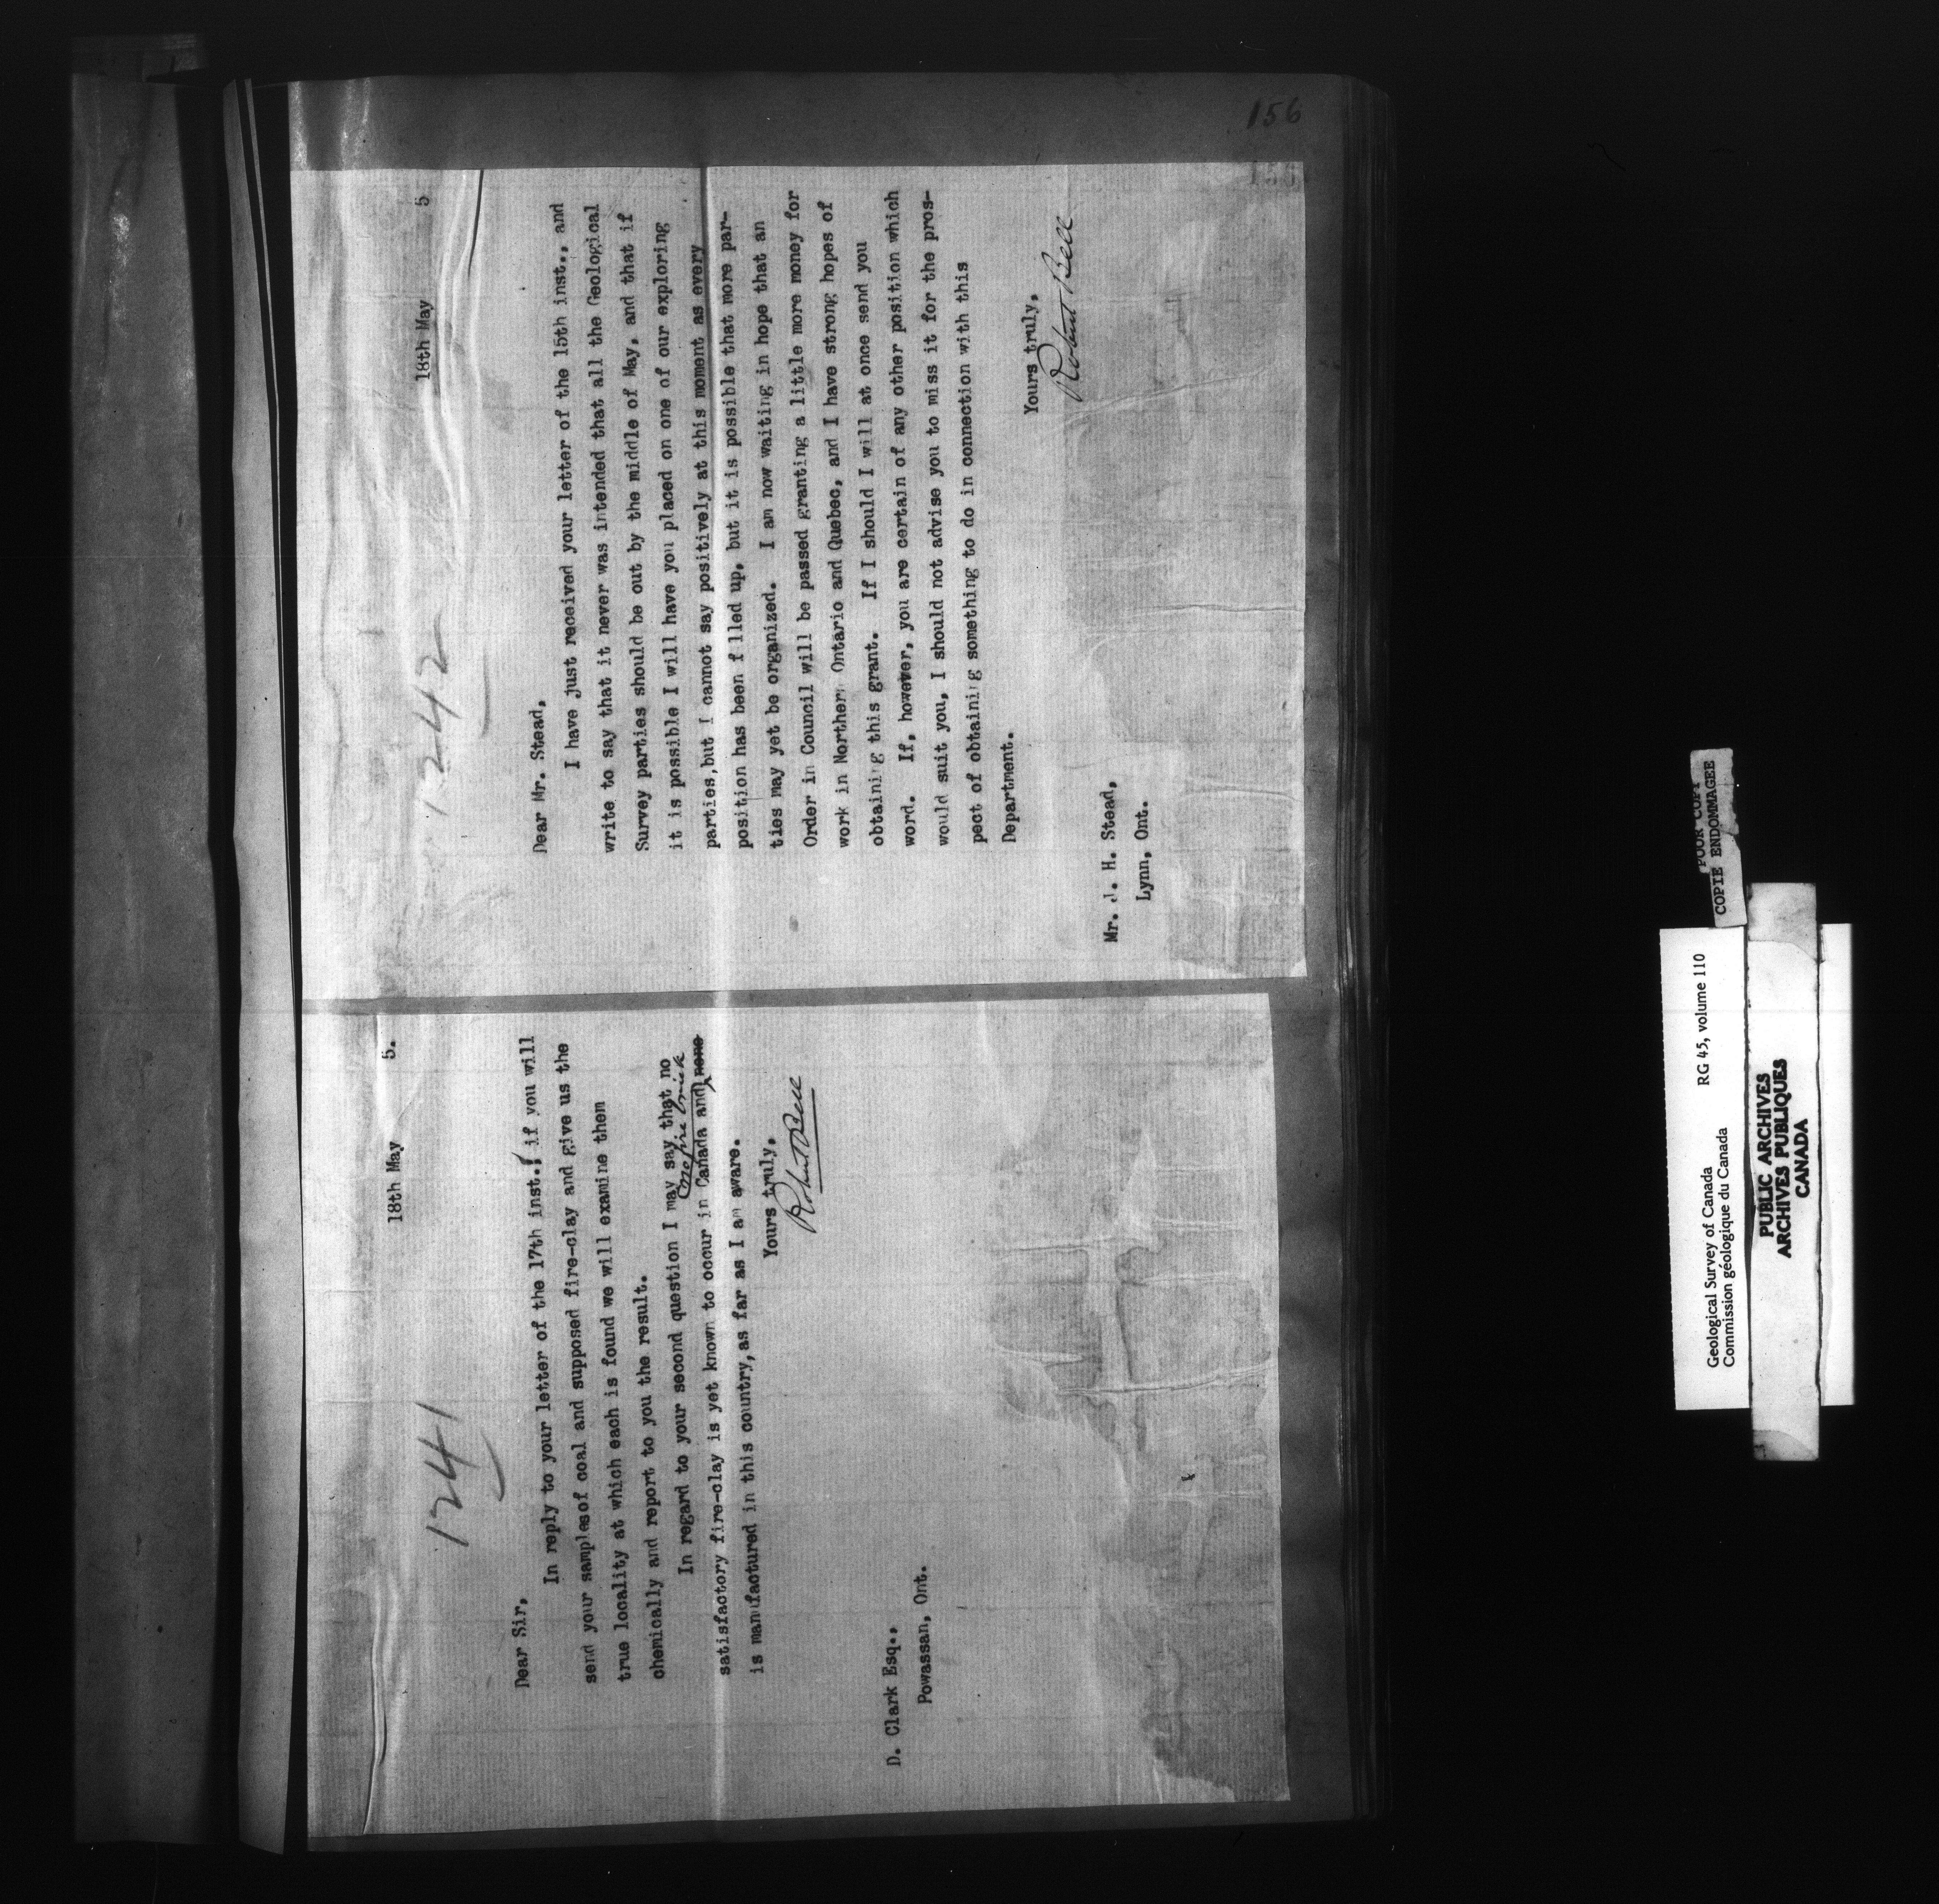 156
1241
18th May 5.
Dear Sir,
In reply to your letter of the 17th inst., if you will
send your samples of coal and supposed fire-clay and give us the
true locality at which each is found we will examine them
chemically and report to you the result.
In regard to your second question I may say that no
satisfactory fire-clay is yet known to occur in Canada and none
no fire brick
is manufactured in this country, as far as I am aware.
Yours truly,
Robert Bell
D. Clark Esq.,
Powassan, Ont.
1242
18th May 5
Dear Mr. Stead,
I have just received your letter of the 15th inst., and
write to say that it never was intended that all the Geological
Survey parties should be out by the middle of May, and that if
it is possible I will have you placed on one of our exploring
parties, but I cannot say positively at this moment as every
position has been f lled up, but it is possible that more par-
ties may yet be organized. I am now waiting in hope that an
Order in Council will be passed granting a little more money for
work in Northern Ontario and Quebec, and I have strong hopes of
obtaining this grant. If I should I will at once send you
word. If, however, you are certain of any other position which
would suit you, I should not advise you to miss it for the pros-
pect of obtaining something to do in connection with this
Department.
Yours truly,
Robert Bell
Mr. J. H. Stead,
Lynn, Ont.
POOR COPY
COPIE ENDOMMAGEE
Geological Survey of Canada RG 45, volume 110
Commission géologique du Canada
PUBLIC ARCHIVES
ARCHIVES PUBLIQUES
CANADA